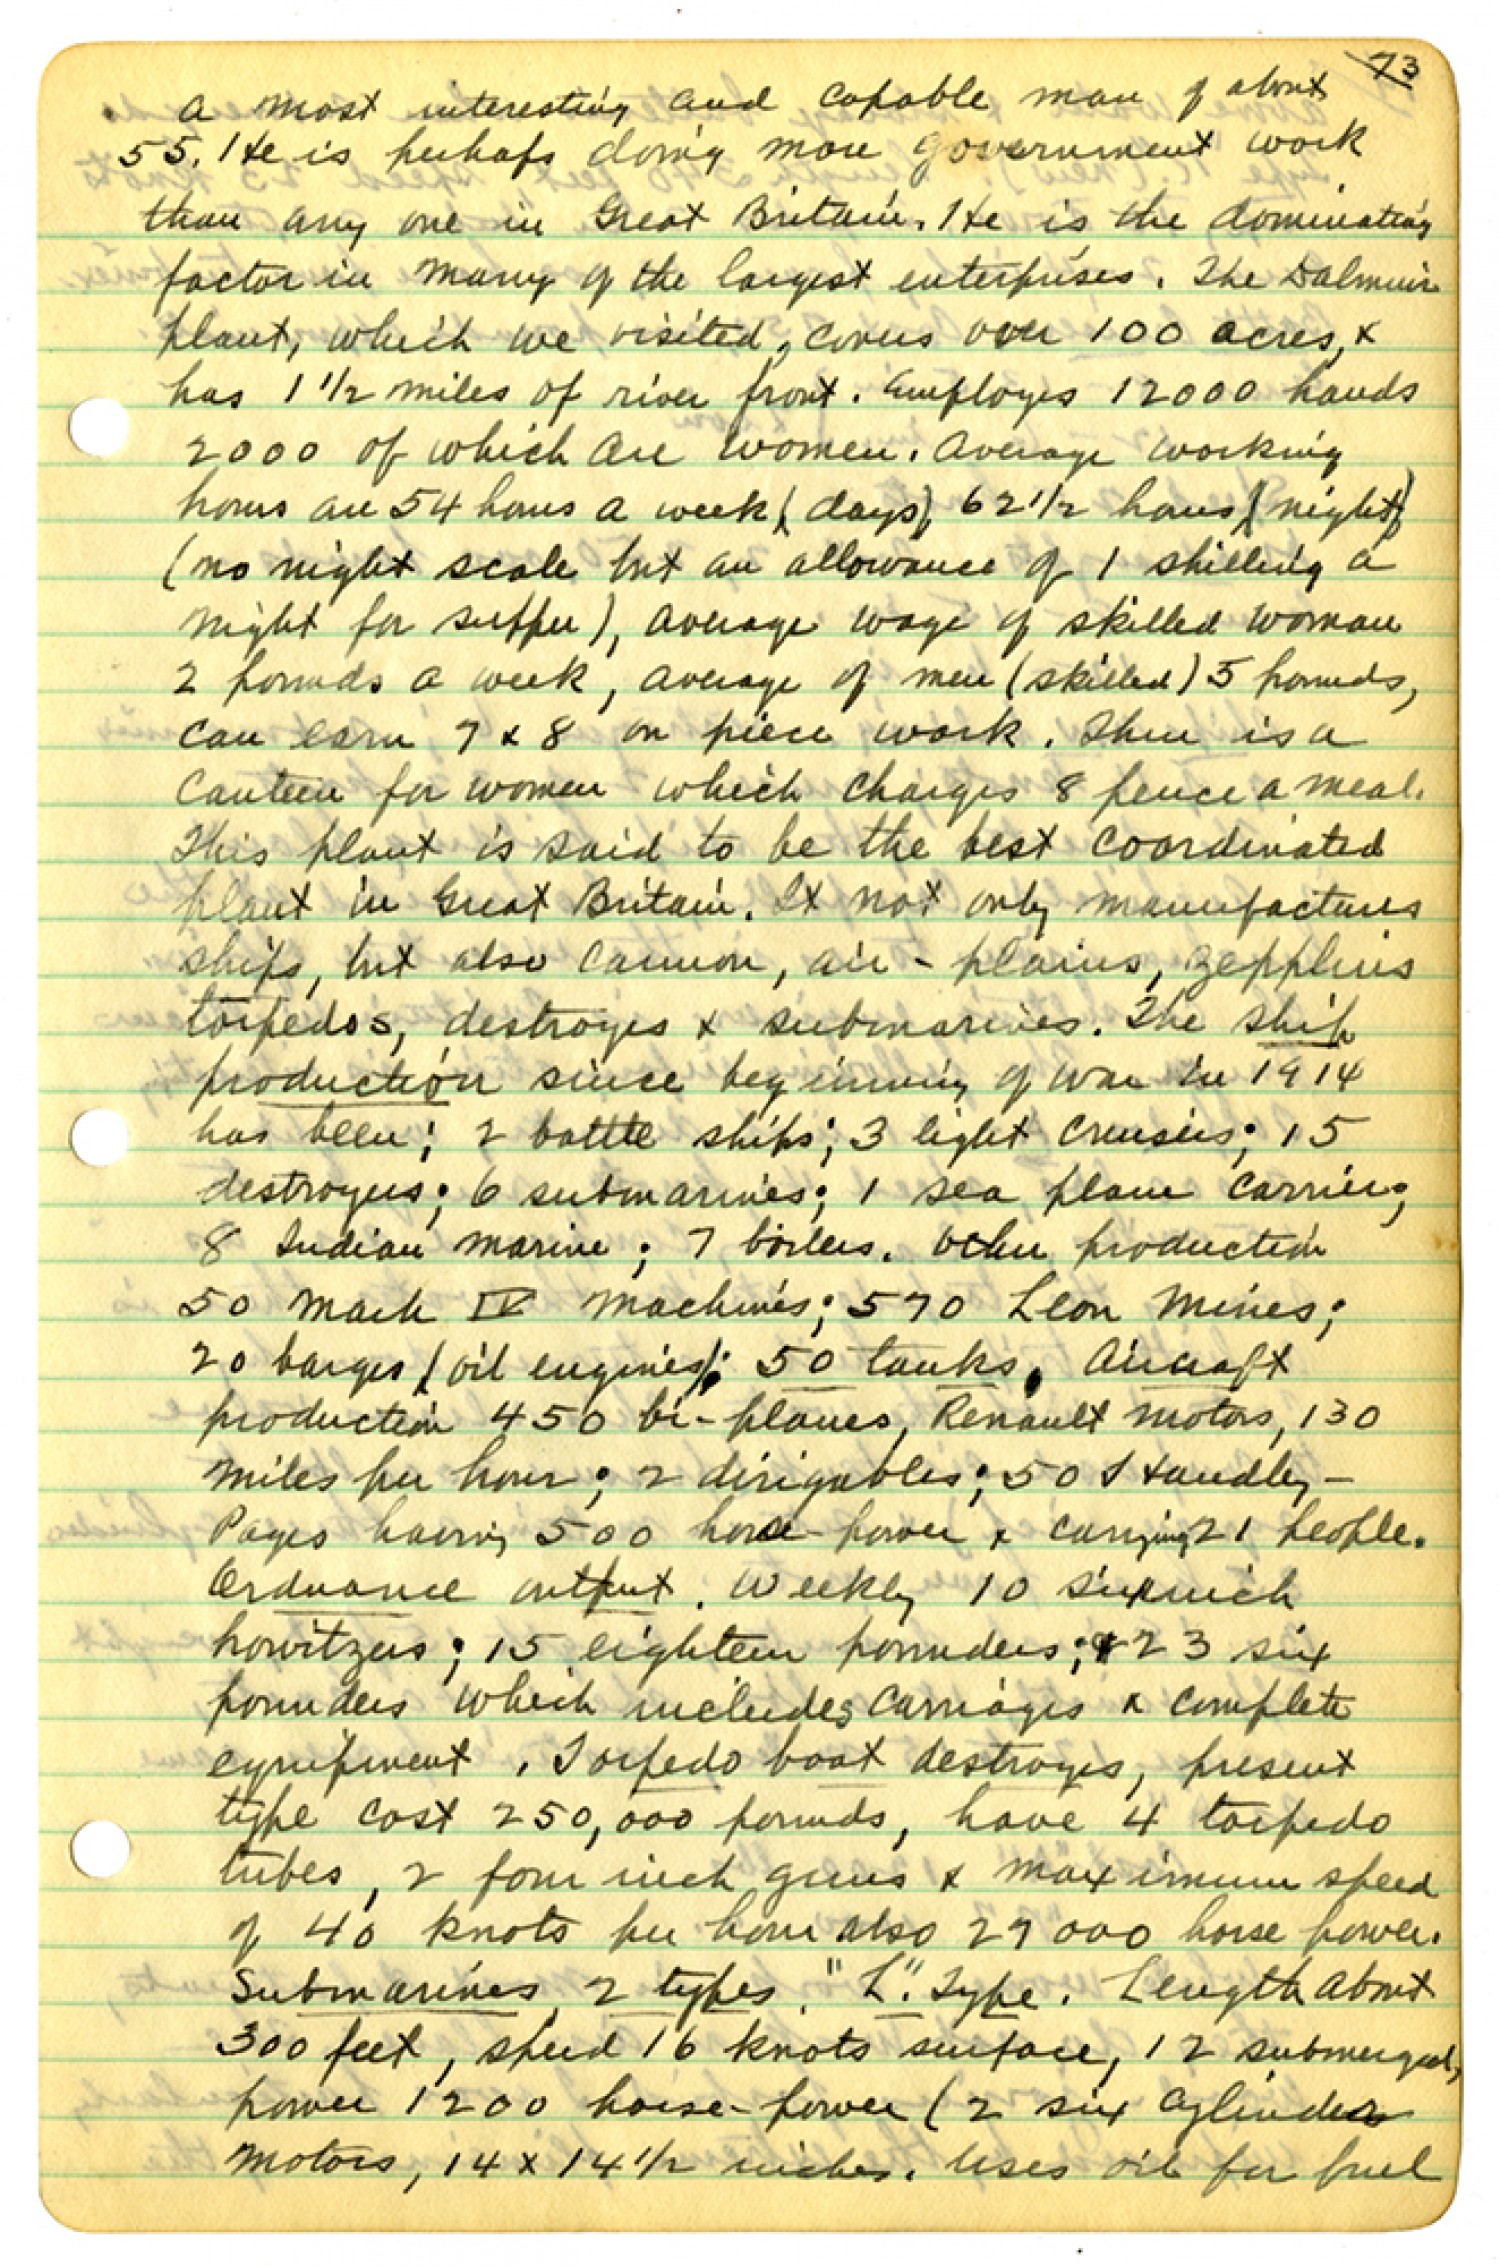 73
a most interesting and capable man of about
55. He is perhaps doing more government work
than any one in Great Britain. He is the dominating
factor in many of the largest enterprises. The Dalmuir
plant, which we visited, covers over 100 acres, &
has 1 1/2 miles of river front. Employes 12000 hands
2000 of which are women. Average working
hours are 54 hours a week (days), 62 1/2 hours (night)
(no night scale but an allowance of 1 shilling a
night for supper), average wage of skilled woman
2 pounds a week, average of men (skilled) 5 pounds,
can earn 7 & 8 on piece work. There is a
Canteen for women which charges 8 pence a meal.
This plant is said to be the best coordinated
plant in Great Britain. It not only manufactures
ships, but also cannon, air-plains, zepplins
torpedos, destroyes & submarines. The ship
production since beginning of war in 1914
has been; 2 battle ships; 3 light cruisers; 15
destroyers; 6 submarines; 1 sea plane carrier;
8 Indian marine; 7 boilers. Other production
50 Mark IV Machines; 570 Leon Mines;
20 barges (oil engines); 50 tanks. Aircraft
production 450 bi-planes, Renault motors, 130
miles per hour; 2 dirigables; 50 Handley-
Pages having 500 horse-power & carrying 21 people.
Ordnance output. Weekly 10 six inch
howitzers; 15 eighteen pounders; & 23 six
pounders which includes carriages & complete
equipment. Torpedo boat destroyes, present
type cost 250,000 pounds, have 4 torpedo
tubes, 2 four inch guns & maximum speed
of 40 knots per hour also 27000 horse power.
Submarines, 2 types. "L". Type. Length about
300 feet, speed 16 knots surface, 12 submerged,
power 1200 horse-power (2 six cylinder
motors, 14 x 14 1/2 inches. Uses oil for fuel